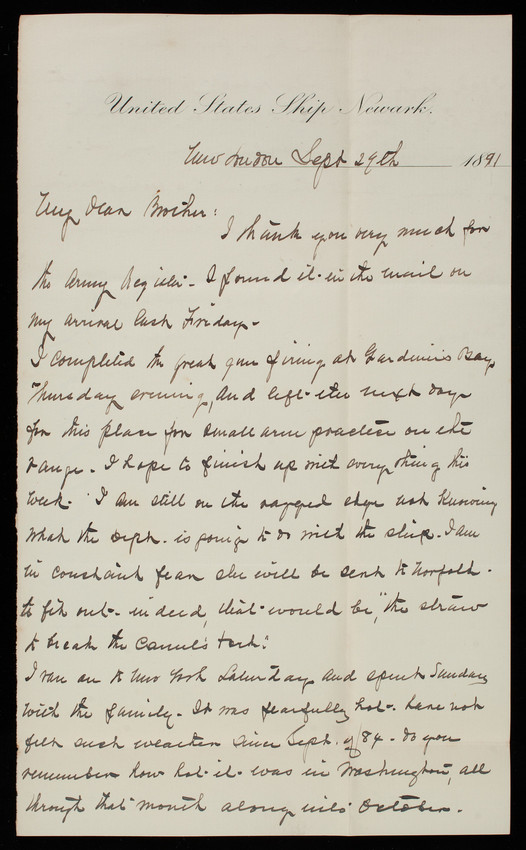 United States Ship Newark.
New London Sept 29th 1891
My dear Brother:
I thank you very much for
the Army Register. I found it in the mail on
my arrival last Friday.
I completed the great gun firing at Gardiner's Bay
Thursday evening, and left the next day
for this place for small arm practice on the
range. I hope to finish up with every thing this
week. I am still on the ragged edge not knowing
what the Dept. is going to do with the ship. I am
in constant fear she will be sent to Norfolk
to fit out - indeed, that would be, "the straw
to break the Camel's back".
I ran on to New York Saturday and spent Sunday
with the family. It was fearfully hot. have not
felt such weather since Sept. of 84. do you
remember how hot it was in Washington, all
through that month along into October.